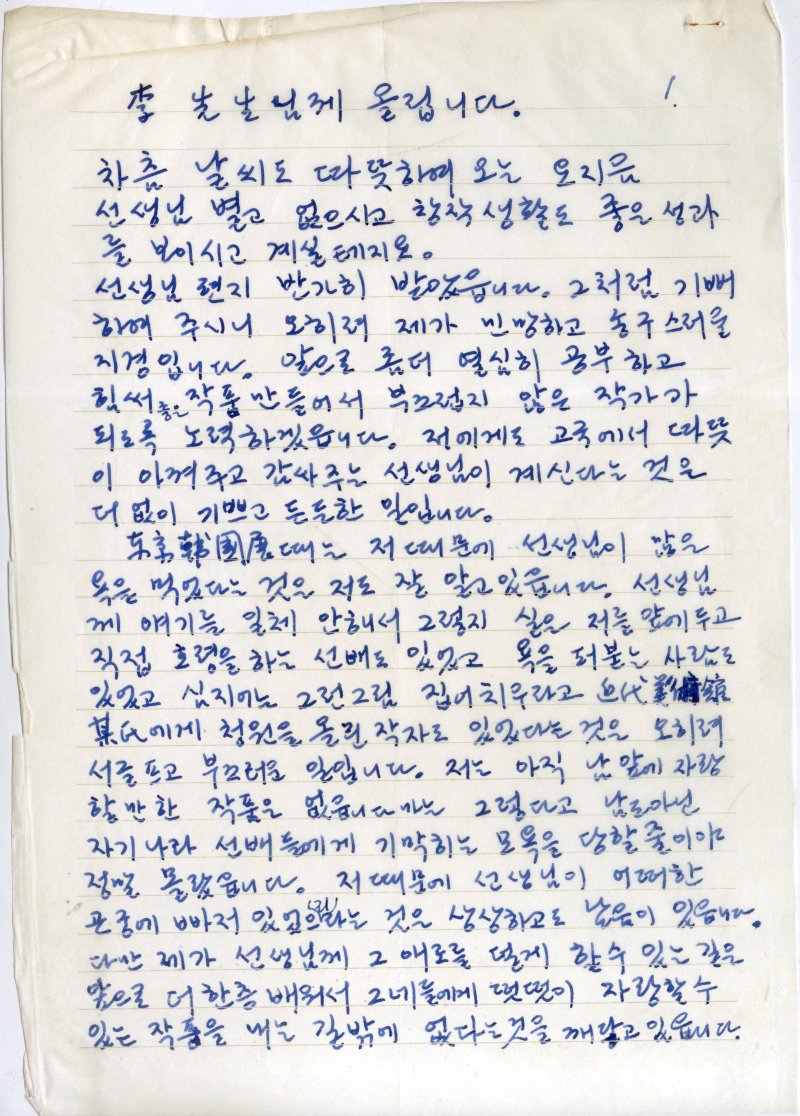 李 선생님께 올립니다. 1.
차츰 날씨도 따뜻하여 오는 요지음
선생님 별고 없으시고 창작생활도 좋은 성과
를 보이시고 계실테지요.
선생님 편지 반가히 받았읍니다. 그처럼 기뻐
하여 주시니 오히려 제가 민망하고 송구스러울
지경입니다. 앞으로 좀더 열심히 공부하고
힘써 좋은 작품 만들어서 부끄럽지 않은 작가가
되도록 노력하겠읍니다. 저에게도 고국에서 따뜻
이 아껴주고 감싸주는 선생님이 계신다는 것은
더없이 기쁘고 든든한 일입니다.
东京韓國展때는 저때문에 선생님이 많은
욕을 먹었다는 것은 저도 잘 알고있읍니다. 선생님
께 얘기를 일체 안해서 그렇지 실은 저를 앞에두고
직접 호령을 하는 선배도 있었고 욕을 퍼붇는 사람도
있었고 심지에는 그런그림 집어치우라고 近代美術館
某氏에게 청원을 올린 작자도 있었다는 것은 오히려
서글프고 부끄러운 일입니다. 저는 아직 남앞에 자랑
할만한 작품은 없읍니다마는 그렇다고 남도아닌
자기나라 선배들에게 기막히는 모욕을 당할줄이야
정말 몰랐읍니다. 저때문에 선생님이 어떠한
곤궁에 빠저 있었으리라는 것은 상상하고도 남음이 있읍니다.
다만 제가 선생님께 그 애로를 덜게 할수 있는 길은
앞으로 더한층 배워서 그네들에게 떳떳이 자랑할수
있는 작품을 내는 길밖에 없다는것을 깨닫고있읍니다.